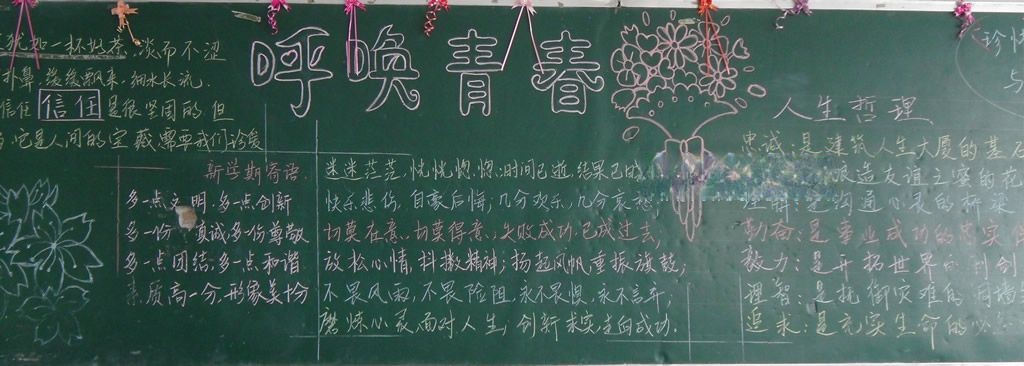 呼唤青春
犹如一杯好茶,淡而不涩
扑鼻,缓缓飘来,细水长流.
信任 信任 是很坚固的,但
它是人间的宝藏,需要我们珍爱
新学期寄语.
多一点文明,多一点创新
多一份真诚多一份尊敬
多一点团结,多一点和谐
素质高一分,形象美十分
迷迷茫茫,恍恍惚惚;时间已逝,结果已成
快乐悲伤,自豪后悔;几分欢乐,几分哀愁
切莫在意,切莫得意,失败成功,已成过去,
放松心情,抖擞精神;扬起风帆,重振旗鼓;
不畏风雨,不畏险阻,永不畏惧,永不言弃,
磨炼心灵,面对人生,创新求实,走向成功.
人生哲理.
忠诚:是建筑人生大厦的基石
是酿造友谊之蜜的花
理解:是沟通心灵的桥梁
勤奋:是事业成功的
毅力:是开拓世界的
理智:是抵御灾难的
追求:是充实生命的
珍惜
与